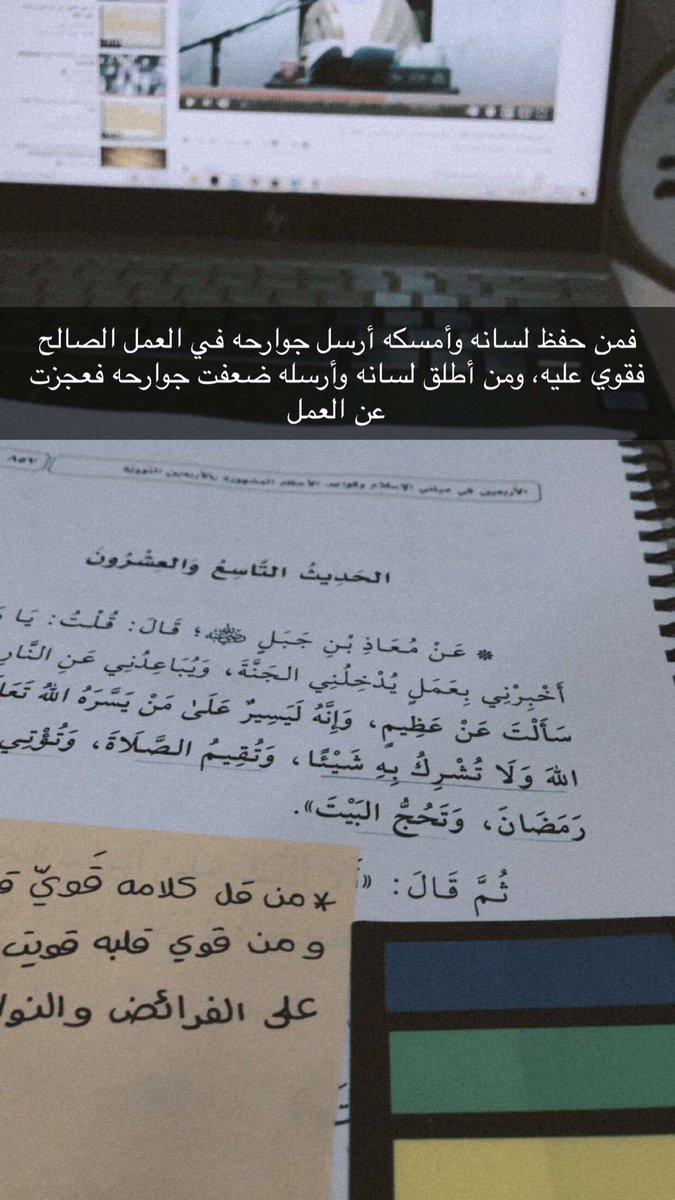 فمن حفظ لسانه وأمسكه أرسل جوارحه في العمل الصالح
فقوي عليه، ومن أطلق لسانه وأرسله ضعفت جوارحه فعجزت
عن العمل
الأربعين في مباني الإسلام وقواعد الأحكام المشهورة بالأربعين النووية
الحَدِيثُ التَّاسِعُ وَالعِشْرُونَ
* عَنْ مُعَاذِ بْنِ جَبَلٍ ؛ قَالَ: قُلْتُ: يَا
أَخْبِرْنِي بِعَمَلٍ يُدْخِلُنِي الجَنَّةَ، وَيُبَاعِدُنِي عَنِ النَّارِ
سَأَلْتَ عَنْ عَظِيمٍ، وَإِنَّهُ لَيَسِيرٌ عَلَىٰ مَنْ يَسَّرَهُ اللهُ
اللهَ وَلَا تُشْرِكُ بِهِ شَيْئًا، وَتُقِيمُ الصَّلَاةَ، وَتُؤْتِي
رَمَضَانَ، وَتَحُجُّ البَيْتَ».
ثُمَّ قَالَ:
* من قل كلامه قَويّ
ومن قوي قلبه قويت
على الفرائض